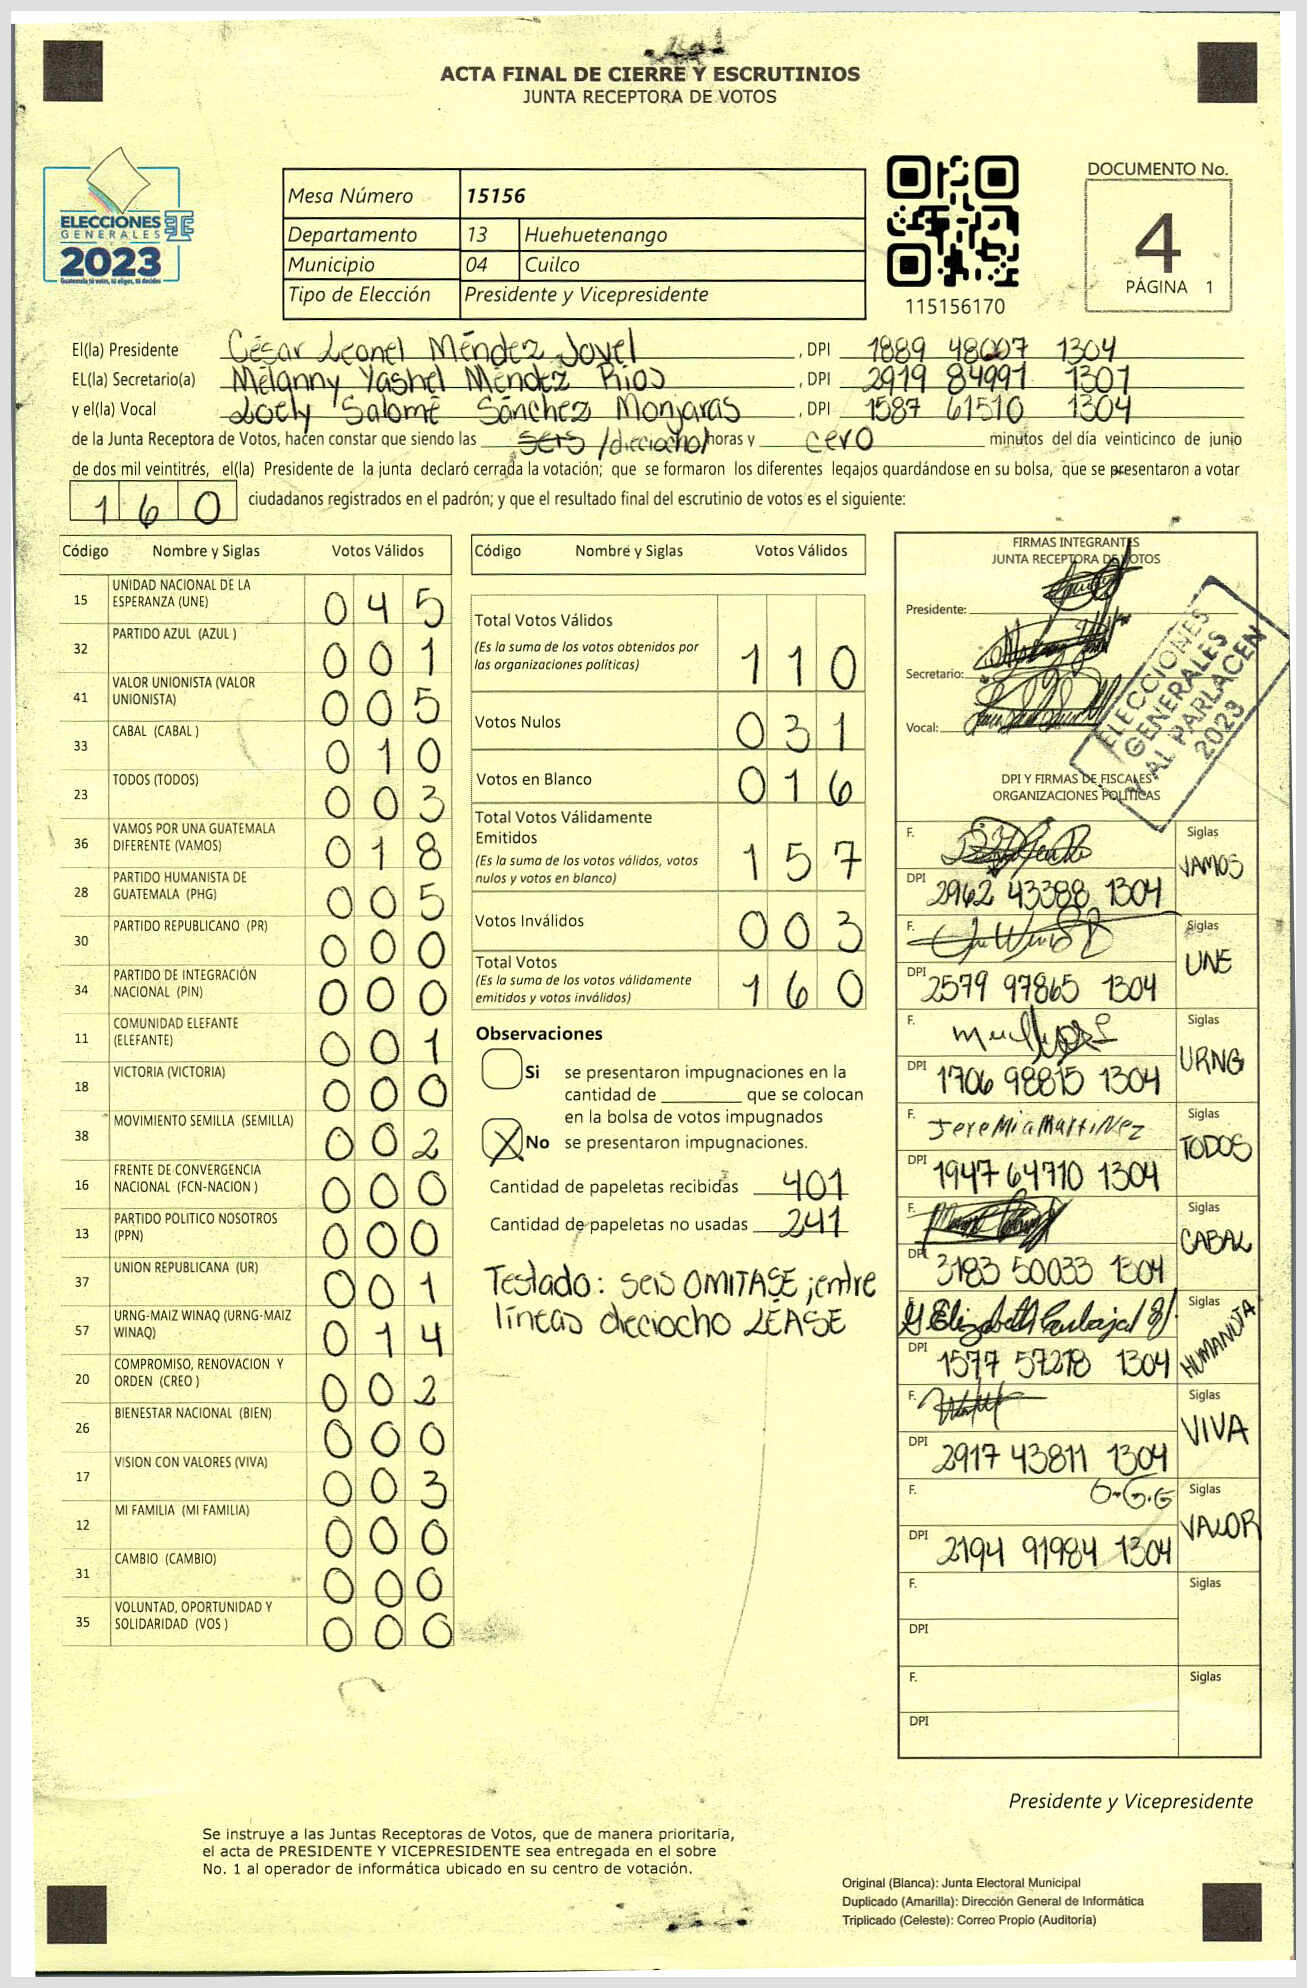 ACTA FINAL DE CIERRE Y ESCRUTINIOS
JUNTA RECEPTORA DE VOTOS
ELECCIONES
GENERALES
2023
Guatemala tú votas, tú eliges, tú decides
Mesa Número 15156
Departamento 13 Huehuetenango
Municipio 04 Cuilco
Tipo de Elección Presidente y Vicepresidente
115156170
DOCUMENTO No.
4
PÁGINA 1
El(la) Presidente César Leonel Méndez Jovel, DPI 1889 48007 1304
EL(la) Secretario(a) Melanny Yashel Méndez Rios, DPI 2919 84991 1301
y el(la) Vocal Loely Salomé Sánchez Monjaras, DPI 1587 61510 1304
de la Junta Receptora de Votos, hacen constar que siendo las seis /dieciocho/ horas y cero minutos del día veinticinco de junio
de dos mil veintitrés, el(la) Presidente de la junta declaró cerrada la votación; que se formaron los diferentes legajos quardándose en su bolsa, que se presentaron a votar
160 ciudadanos registrados en el padrón; y que el resultado final del escrutinio de votos es el siguiente:
Código Nombre y Siglas Votos Válidos
15 UNIDAD NACIONAL DE LA ESPERANZA (UNE) 045
32 PARTIDO AZUL (AZUL ) 001
41 VALOR UNIONISTA (VALOR UNIONISTA) 005
33 CABAL (CABAL ) 010
23 TODOS (TODOS) 003
36 VAMOS POR UNA GUATEMALA DIFERENTE (VAMOS) 018
28 PARTIDO HUMANISTA DE GUATEMALA (PHG) 005
30 PARTIDO REPUBLICANO (PR) 000
34 PARTIDO DE INTEGRACIÓN NACIONAL (PIN) 000
11 COMUNIDAD ELEFANTE (ELEFANTE) 001
18 VICTORIA (VICTORIA) 000
38 MOVIMIENTO SEMILLA (SEMILLA) 002
16 FRENTE DE CONVERGENCIA NACIONAL (FCN-NACION ) 000
13 PARTIDO POLITICO NOSOTROS (PPN) 000
37 UNION REPUBLICANA (UR) 001
57 URNG-MAIZ WINAQ (URNG-MAIZ WINAQ) 014
20 COMPROMISO, RENOVACION Y ORDEN (CREO ) 002
26 BIENESTAR NACIONAL (BIEN) 000
17 VISION CON VALORES (VIVA) 003
12 MI FAMILIA (MI FAMILIA) 000
31 CAMBIO (CAMBIO) 000
35 VOLUNTAD, OPORTUNIDAD Y SOLIDARIDAD (VOS ) 000
Código Nombre y Siglas Votos Válidos
Total Votos Válidos 110
(Es la suma de los votos obtenidos por
las organizaciones políticas)
Votos Nulos 031
Votos en Blanco 016
Total Votos Válidamente
Emitidos 157
(Es la suma de los votos válidos, votos
nulos y votos en blanco)
Votos Inválidos 003
Total Votos 160
(Es la suma de los votos válidamente
emitidos y votos inválidos)
Observaciones
Si se presentaron impugnaciones en la
cantidad de ________ que se colocan
en la bolsa de votos impugnados
X No se presentaron impugnaciones.
Cantidad de papeletas recibidas 401
Cantidad de papeletas no usadas 241
Testado: seis OMITASE ;entre
líneas dieciocho LÉASE
FIRMAS INTEGRANTES
JUNTA RECEPTORA DE VOTOS
Presidente:
Secretario:
Vocal:
ELECCIONES
GENERALES
Y AL PARLACEN
2023
DPI Y FIRMAS DE FISCALES
ORGANIZACIONES POLÍTICAS
F. Siglas VAMOS
DPI 2962 43388 1304
F. Siglas UNE
DPI 2579 97865 1304
F. Siglas URNG
DPI 1706 98815 1304
F. Jeremia Martinez Siglas TODOS
DPI 1947 64710 1304
F. Siglas CABAL
DPI 3183 50033 1304
F. G. Elizabeth Carbajal Siglas HUMANISTA
DPI 1577 57278 1304
F. Siglas VIVA
DPI 2917 43811 1304
F. G.G.G Siglas VALOR
DPI 2194 91984 1304
F. Siglas
DPI
F. Siglas
DPI
Presidente y Vicepresidente
Se instruye a las Juntas Receptoras de Votos, que de manera prioritaria,
el acta de PRESIDENTE Y VICEPRESIDENTE sea entregada en el sobre
No. 1 al operador de informática ubicado en su centro de votación.
Original (Blanca): Junta Electoral Municipal
Duplicado (Amarilla): Dirección General de Informática
Triplicado (Celeste): Correo Propio (Auditoría)